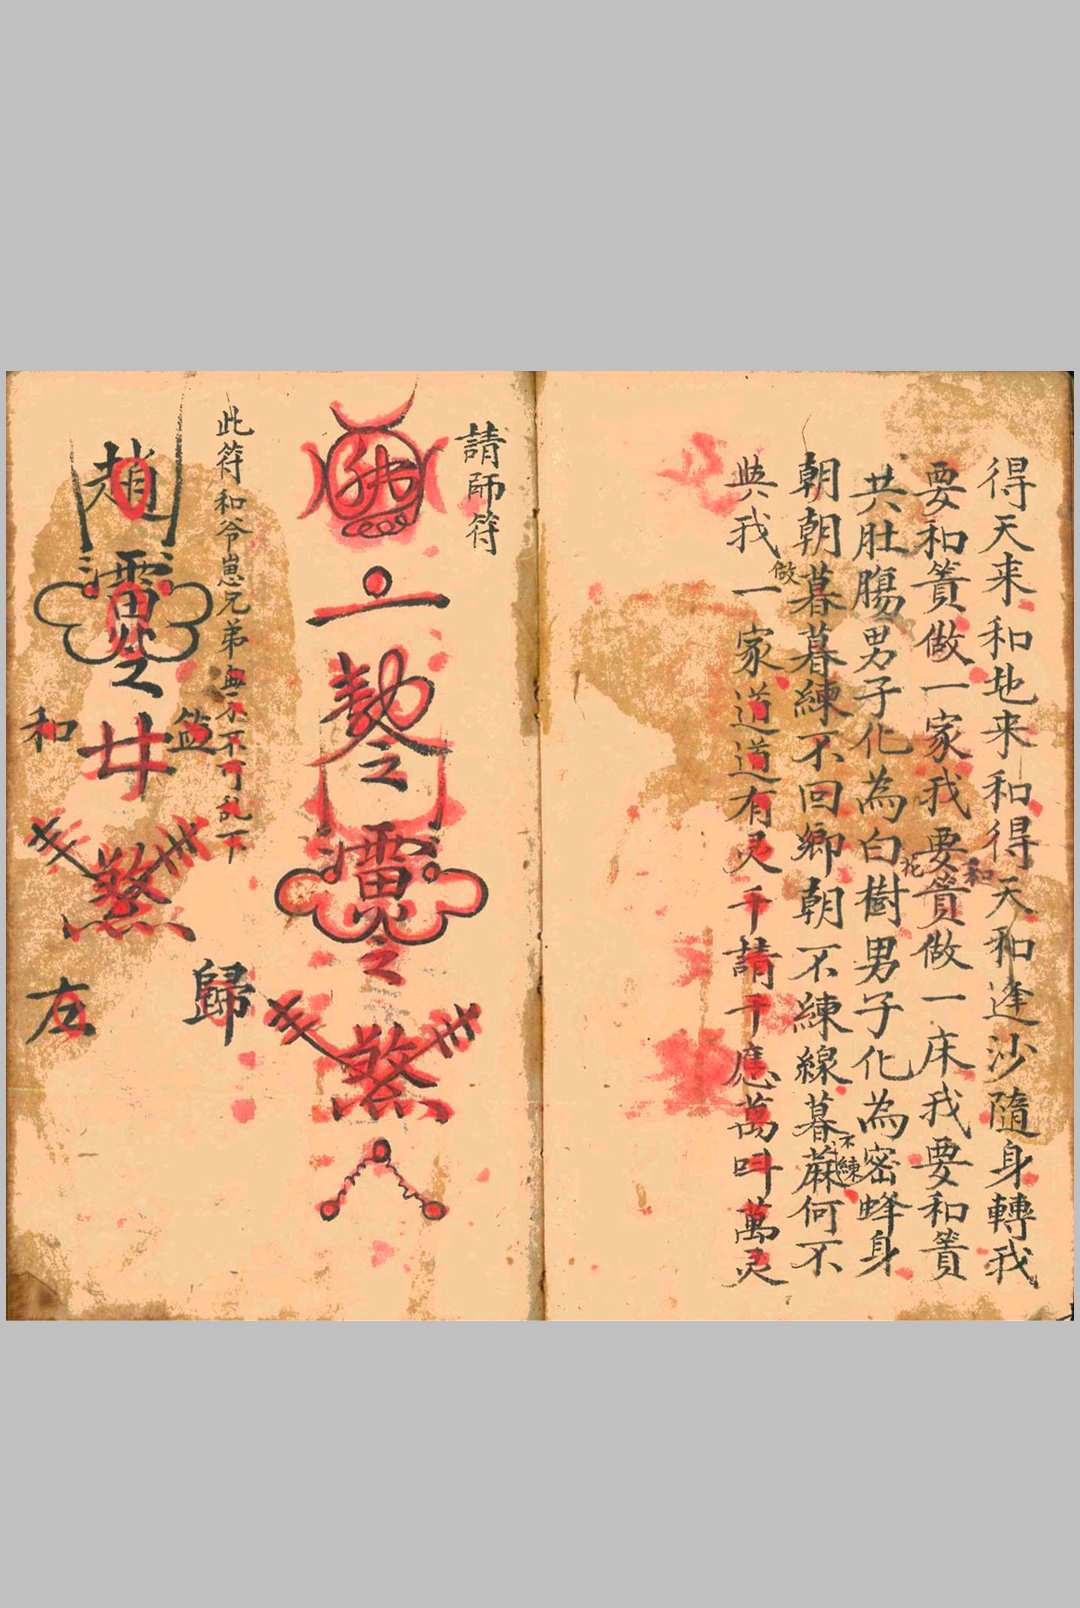 得天来和地来和得天和逢沙隨身轉我
要和簣做一家我要簣做一床我要和簣
和
共肚腸男子化為白樹男子化為密蜂身
花
朝朝暮暮練不回鄉朝不練線暮蔴何不
不練
與我一家道道有灵千請千應萬呌萬灵
做
請師符
之
之
煞
此符和爷崽兄弟 不可乱下
趙
之
和
煞
歸
左